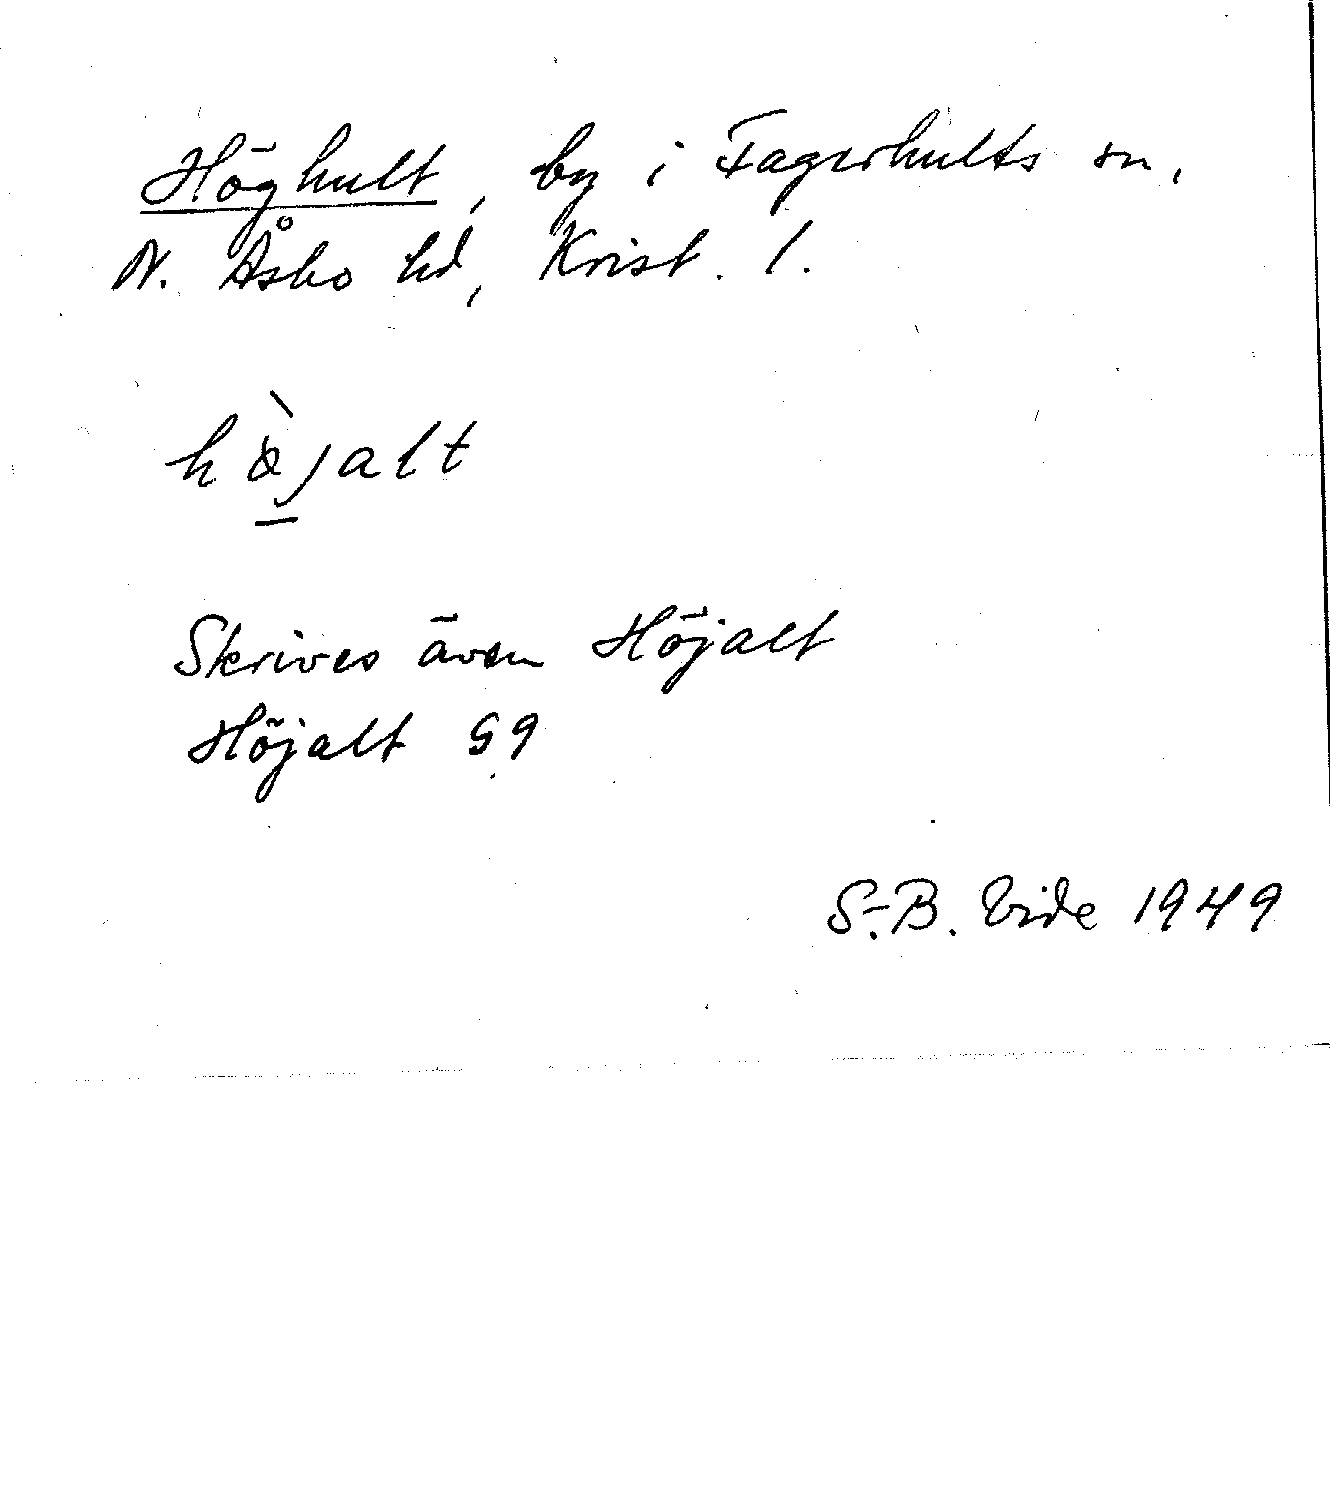 Höghult, by i Fagerhults sn,
N. Åsbo hd, Krist. l.
hø̀jalt
Skrives även Höjalt
Höjalt G9
S.-B. Vide 1949